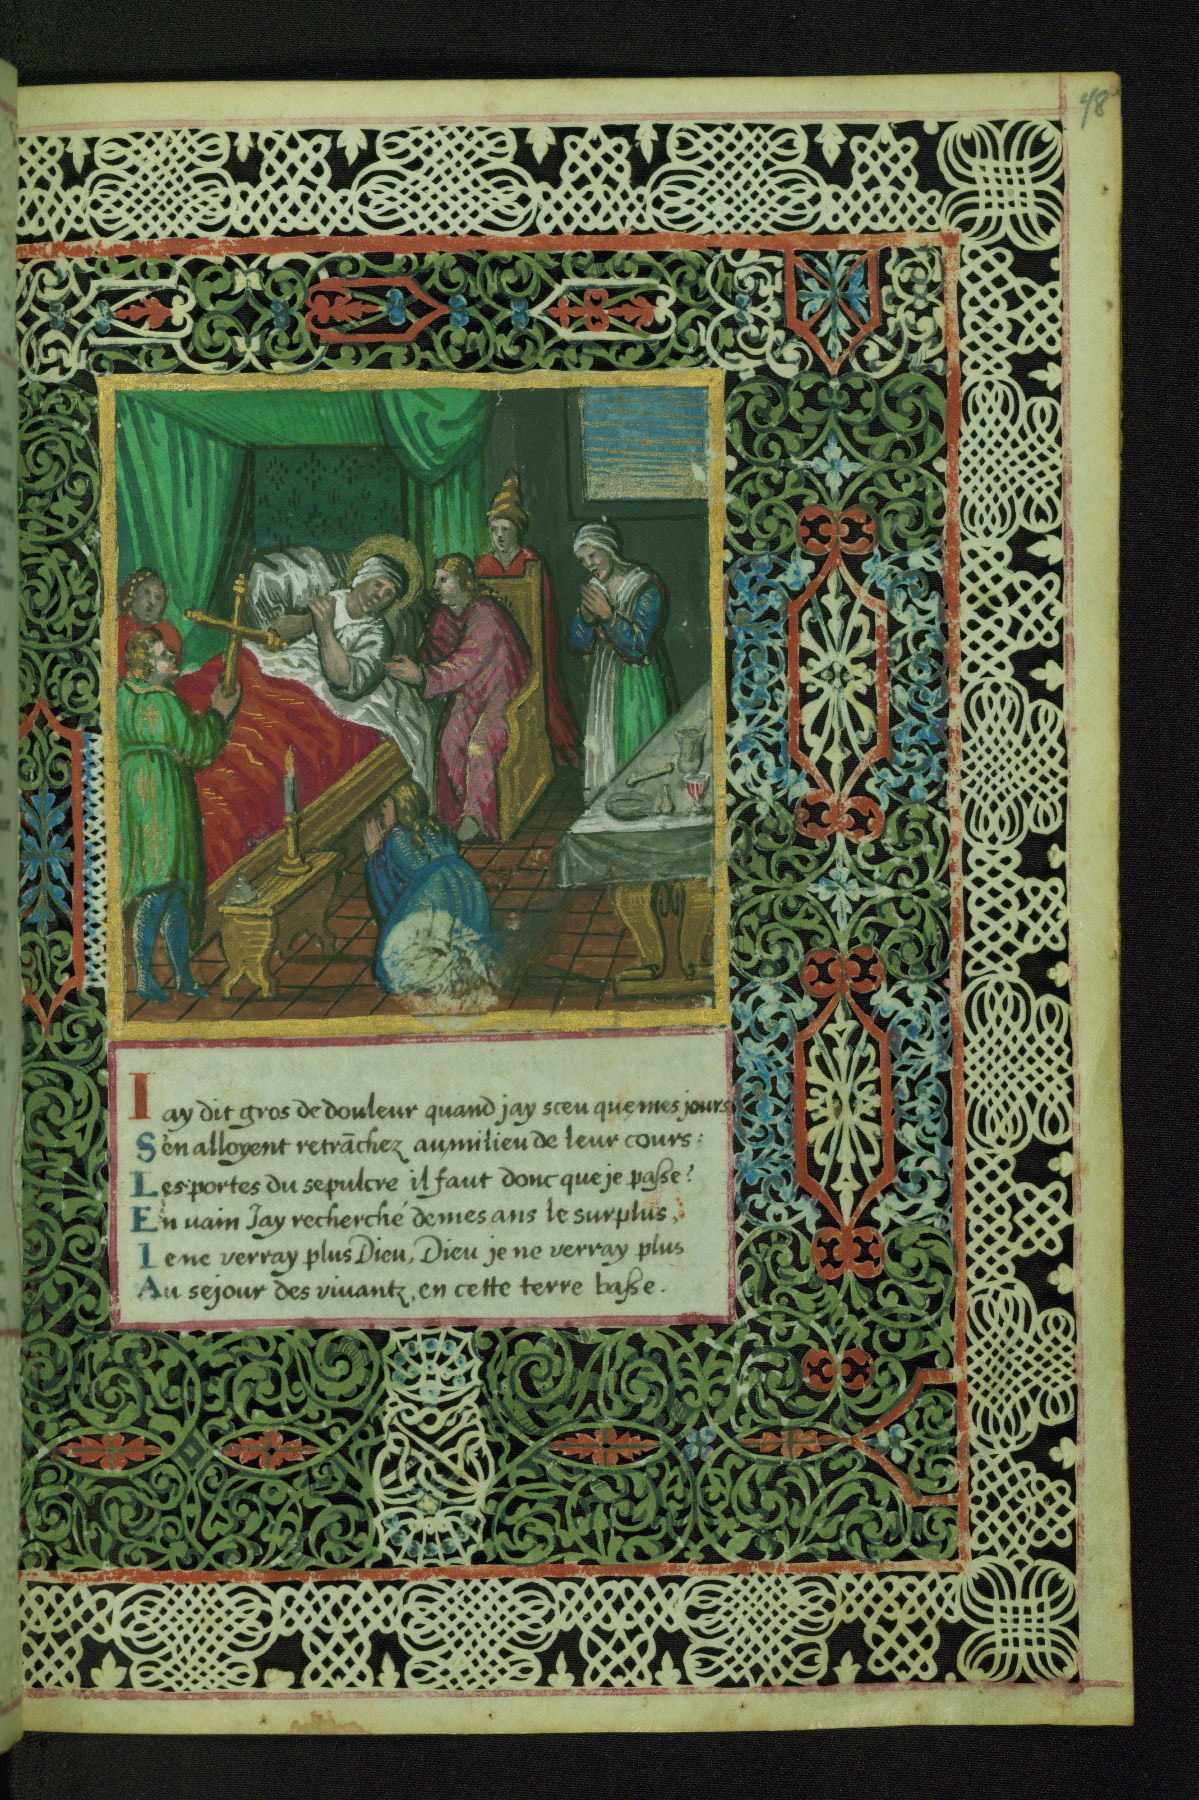 48
Iay dit gros de douleur quand jay sceu que mes jours
S'en alloyent retrãchez au milieu de leur cours:
Les portes du sepulcre il faut donc que je paße?
En uain Jay recherché de mes ans le surplus,
Ie ne verray plus Dieu, Dieu je ne verray plus
Au sejour des viuantz, en cette terre baße.